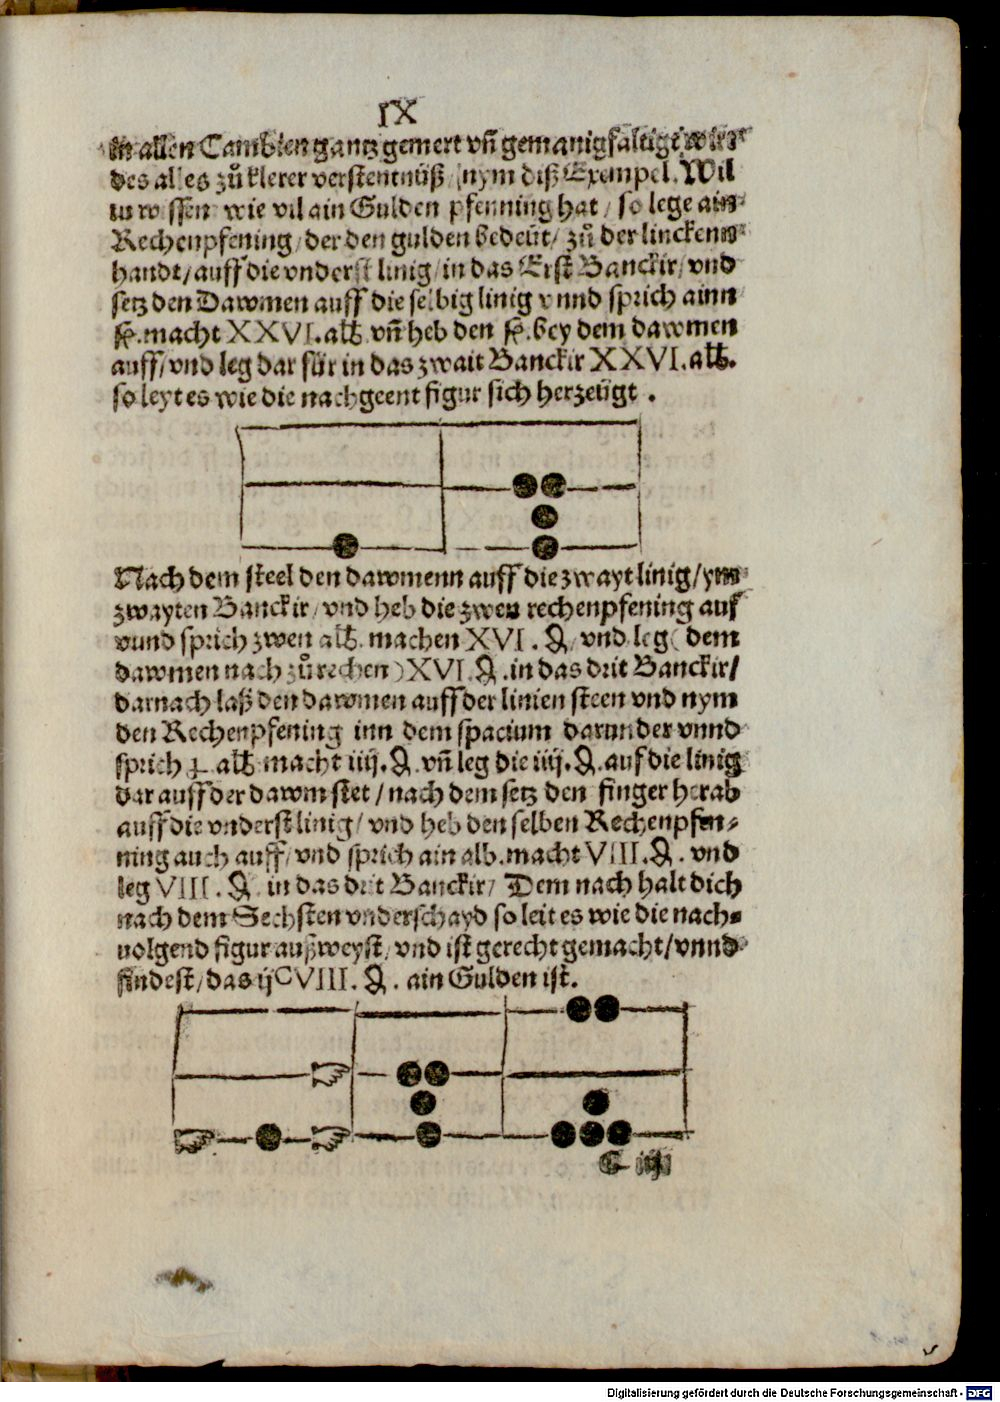 IX
in allen Cambien gantz gemert vñ gemanigfaltiget wirt
des alles zů klerer verstentnüß / nym diß Exempel. Wil
tu wissen wie vil ain Gulden pfenning hat / so lege ain
Rechenpfening / der den gulden bedeüt / zů der linckenn
handt / auff die vnderst linig / in das Erst Banckir / vnd
setz den Dawmen auff die selbig linig vnnd sprich ainn
fl. macht XXVI. alb. vñ heb den fl. bey dem dawmen
auff / vnd leg dar für in das zwait Banckir XXVI. alb.
so leyt es wie die nachgeent figur sich herzeügt .
Nach dem steel den dawmenn auff die zwayt linig / ym
zwayten Banckir / vnd heb die zwen rechenpfening auf
vnnd sprich zwen alb. machen XVI. ₰ / vnd leg ( dem
dawmen nach zů rechen ) XVI. ₰. in das drit Banckir /
darnach laß den dawmen auff der linien steen vnd nym
den Rechenpfening inn dem spacium darunder vnnd
sprich alb. macht iiij. ₰. vñ leg die iiij. ₰. auf die linig
dar auff der dawm stet / nach dem setz den finger herab
auff die vnderst linig / vnd heb den selben Rechenpfen-
ning auch auff / vnd sprich ain alb. macht VIII. ₰. vnd
leg VIII. ₰. in das drit Banckir / Dem nach halt dich
nach dem Sechsten vnderschayd so leit es wie die nach-
uolgend figur außweyst / vnd ist gerecht gemacht / vnnd
findest / das ijCVIII. ₰. ain Gulden ist.
Digitalisierung gefördert durch die Deutsche Forschungsgemeinschaft - DFG